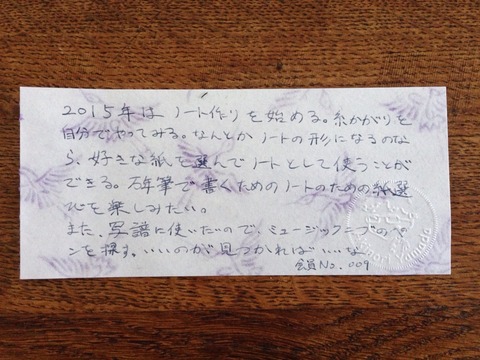 2015年は ノート作りを始める。糸かがりを
自分でやってみる。なんとかノートの形になるのな
ら、好きな紙を選んでノートとして使うことが
できる。万年筆で書くためのノートのための紙選
びを楽しみたい。
また、写譜に使いたいので、ミュージックニブのペ
ンを探す。いいのが見つかればいいな
会員No. 009